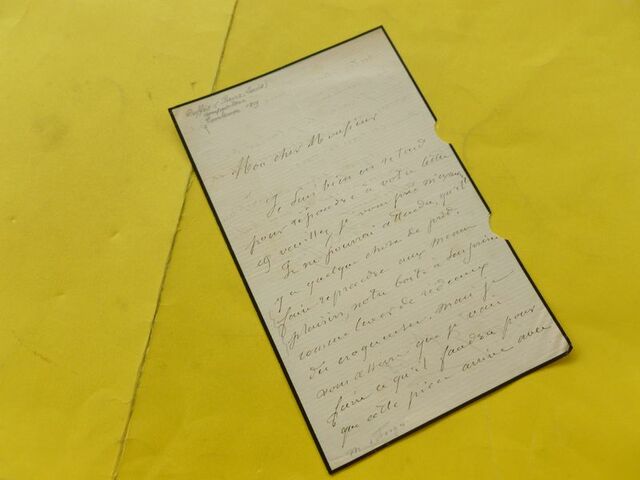 Mon cher Monsieur
Je suis bien en retard
pour répondre à votre lettre
et veuillez, je vous prie m'excuser
Je ne pouvai attendre, qu'il
y a quelque chose de prêt.
faire reprendre aux
plaisirs, notre boite à
comme lever de rideaux
des mais je
vous que je vais
faire ce qu'il faudra pour
que cette pièce arrive avec